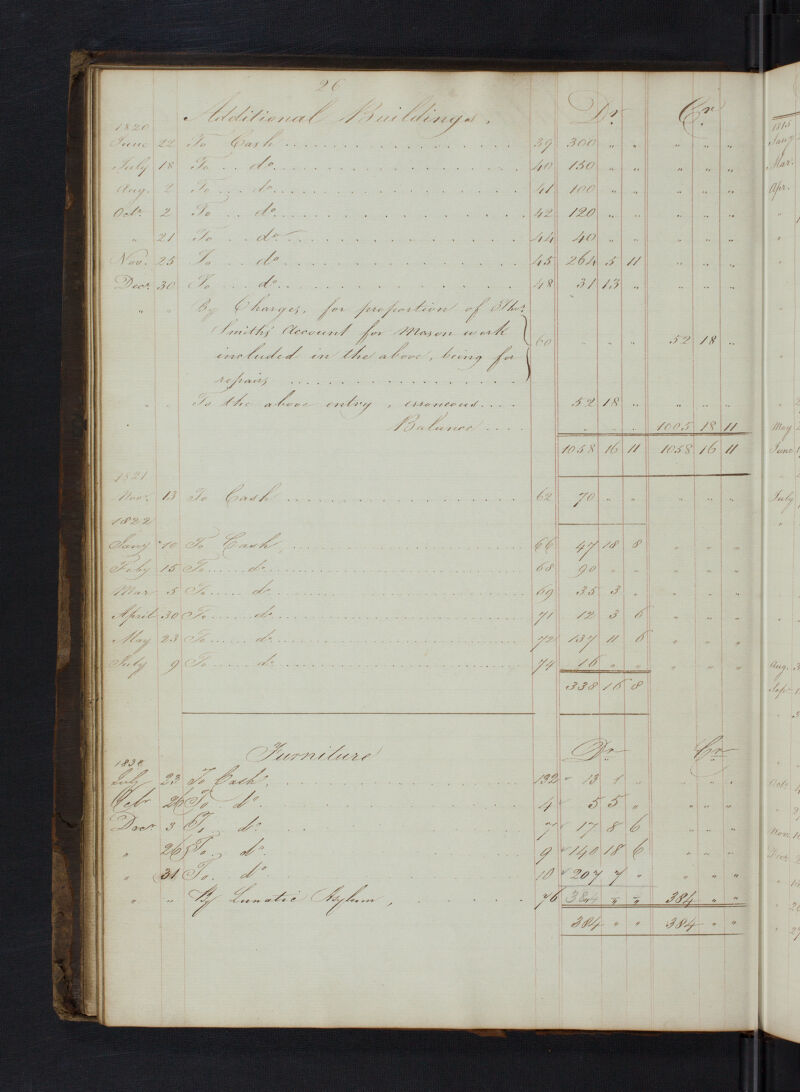 26
Additional Buildings. Dr. Cr.
1820
June 22 To Cash 39 300 " " " " "
July 18 To do. 40 150 " " " " "
Aug. 2 To do. 41 100 " " " " "
Octr. 2 To do. 42 120 " " " " "
" 21 To do. 44 40 " " " " "
Novr. 25 To do. 45 264 5 11 " " "
Decr. 30 To do. 48 31 13 " " " "
" " By Charges, for proportion of Thos.
Smith's Account for Mason work
included in the above, being for 60 " " " 52 18 "
repairs
" " To the above entry, erroneous 52 18 " " " "
Balance " " " 1005 18 11
1058 16 11 1058 16 11
1821
Novr. 13 To Cash 62 70 " " " " "
1822
Jany 10 To Cash 66 47 18 8 " " "
Feby 15 To do. 68 90 " " " " "
Mar 5 To do. 69 35 3 " " " "
April 30 To do. 71 12 3 6 " " "
May 23 To do. 72 137 11 6 " " "
July 9 To do. 74 16 " " " " "
338 16 8
Furniture Dr. Cr.
July 23 To Cash, 192 13 " "
Octr 26 To do. 4 5 5 " " " "
Decr 3 To do. 7 17 8 6 " " "
" 26 To do. 9 140 18 6 " " "
" 31 To do. 10 207 7 " " " "
" " By Lunatic Asylum, 76 384 " " 384 " "
384 " " 384 " "
1815
Jany
Mar.
Apr.
May
June
July
Aug. 3
Sepr.
Octr.
Novr.
Decr.